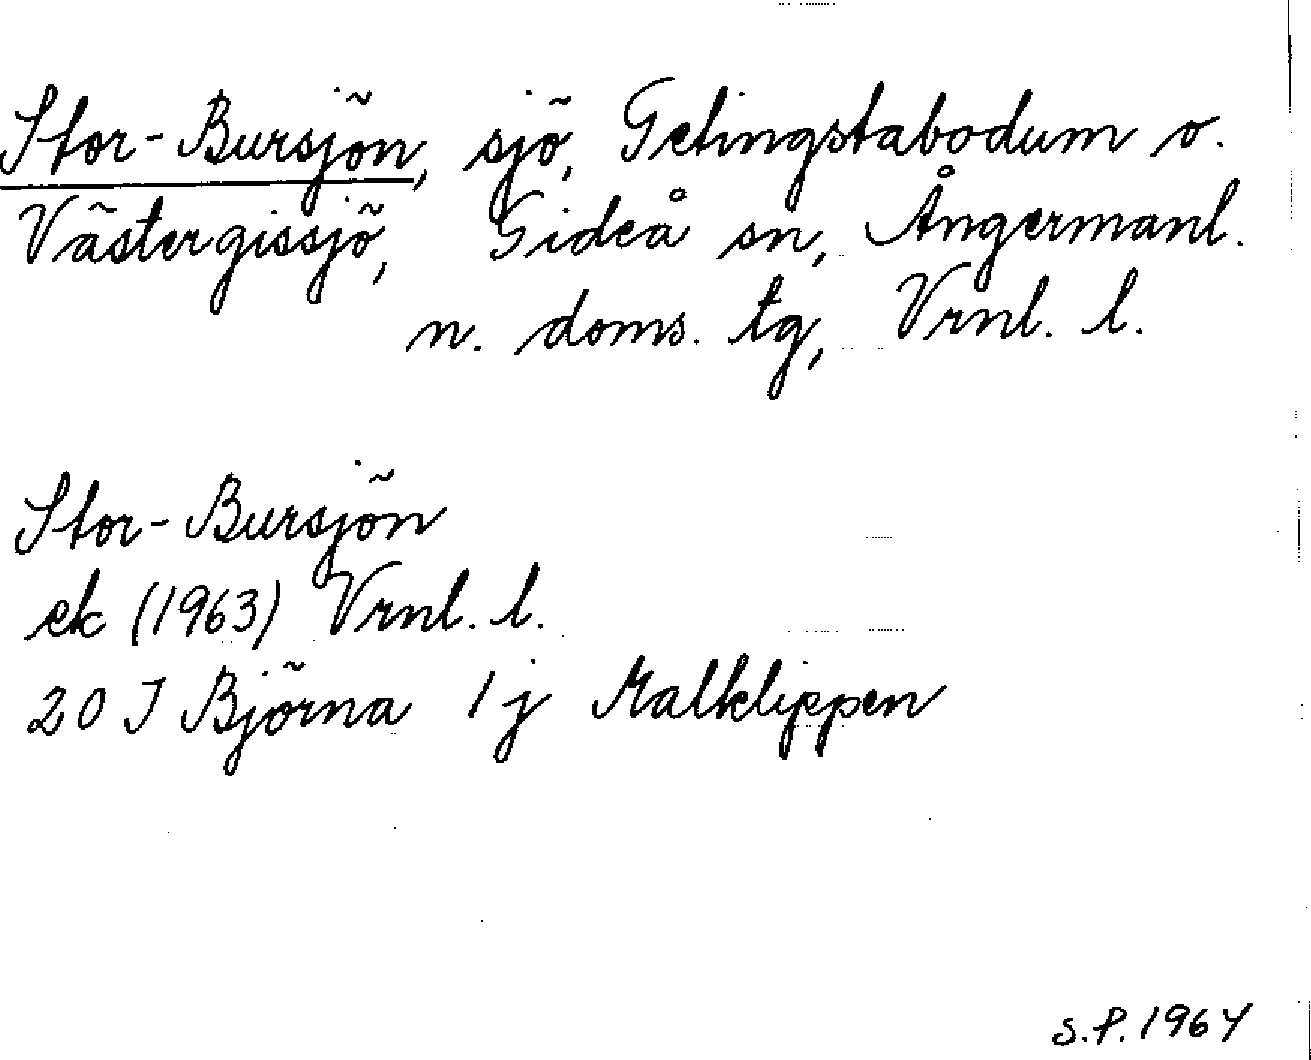 Stor-Bursjön, sjö, Getingstabodum o.
Västergissjö, Gideå sn, Ångermanl.
n. doms. tg, Vrnl. l.
Stor-Bursjön
ek (1963) Vrnl. l.
20 J Björna 1 j Malklippen
S.P. 1964